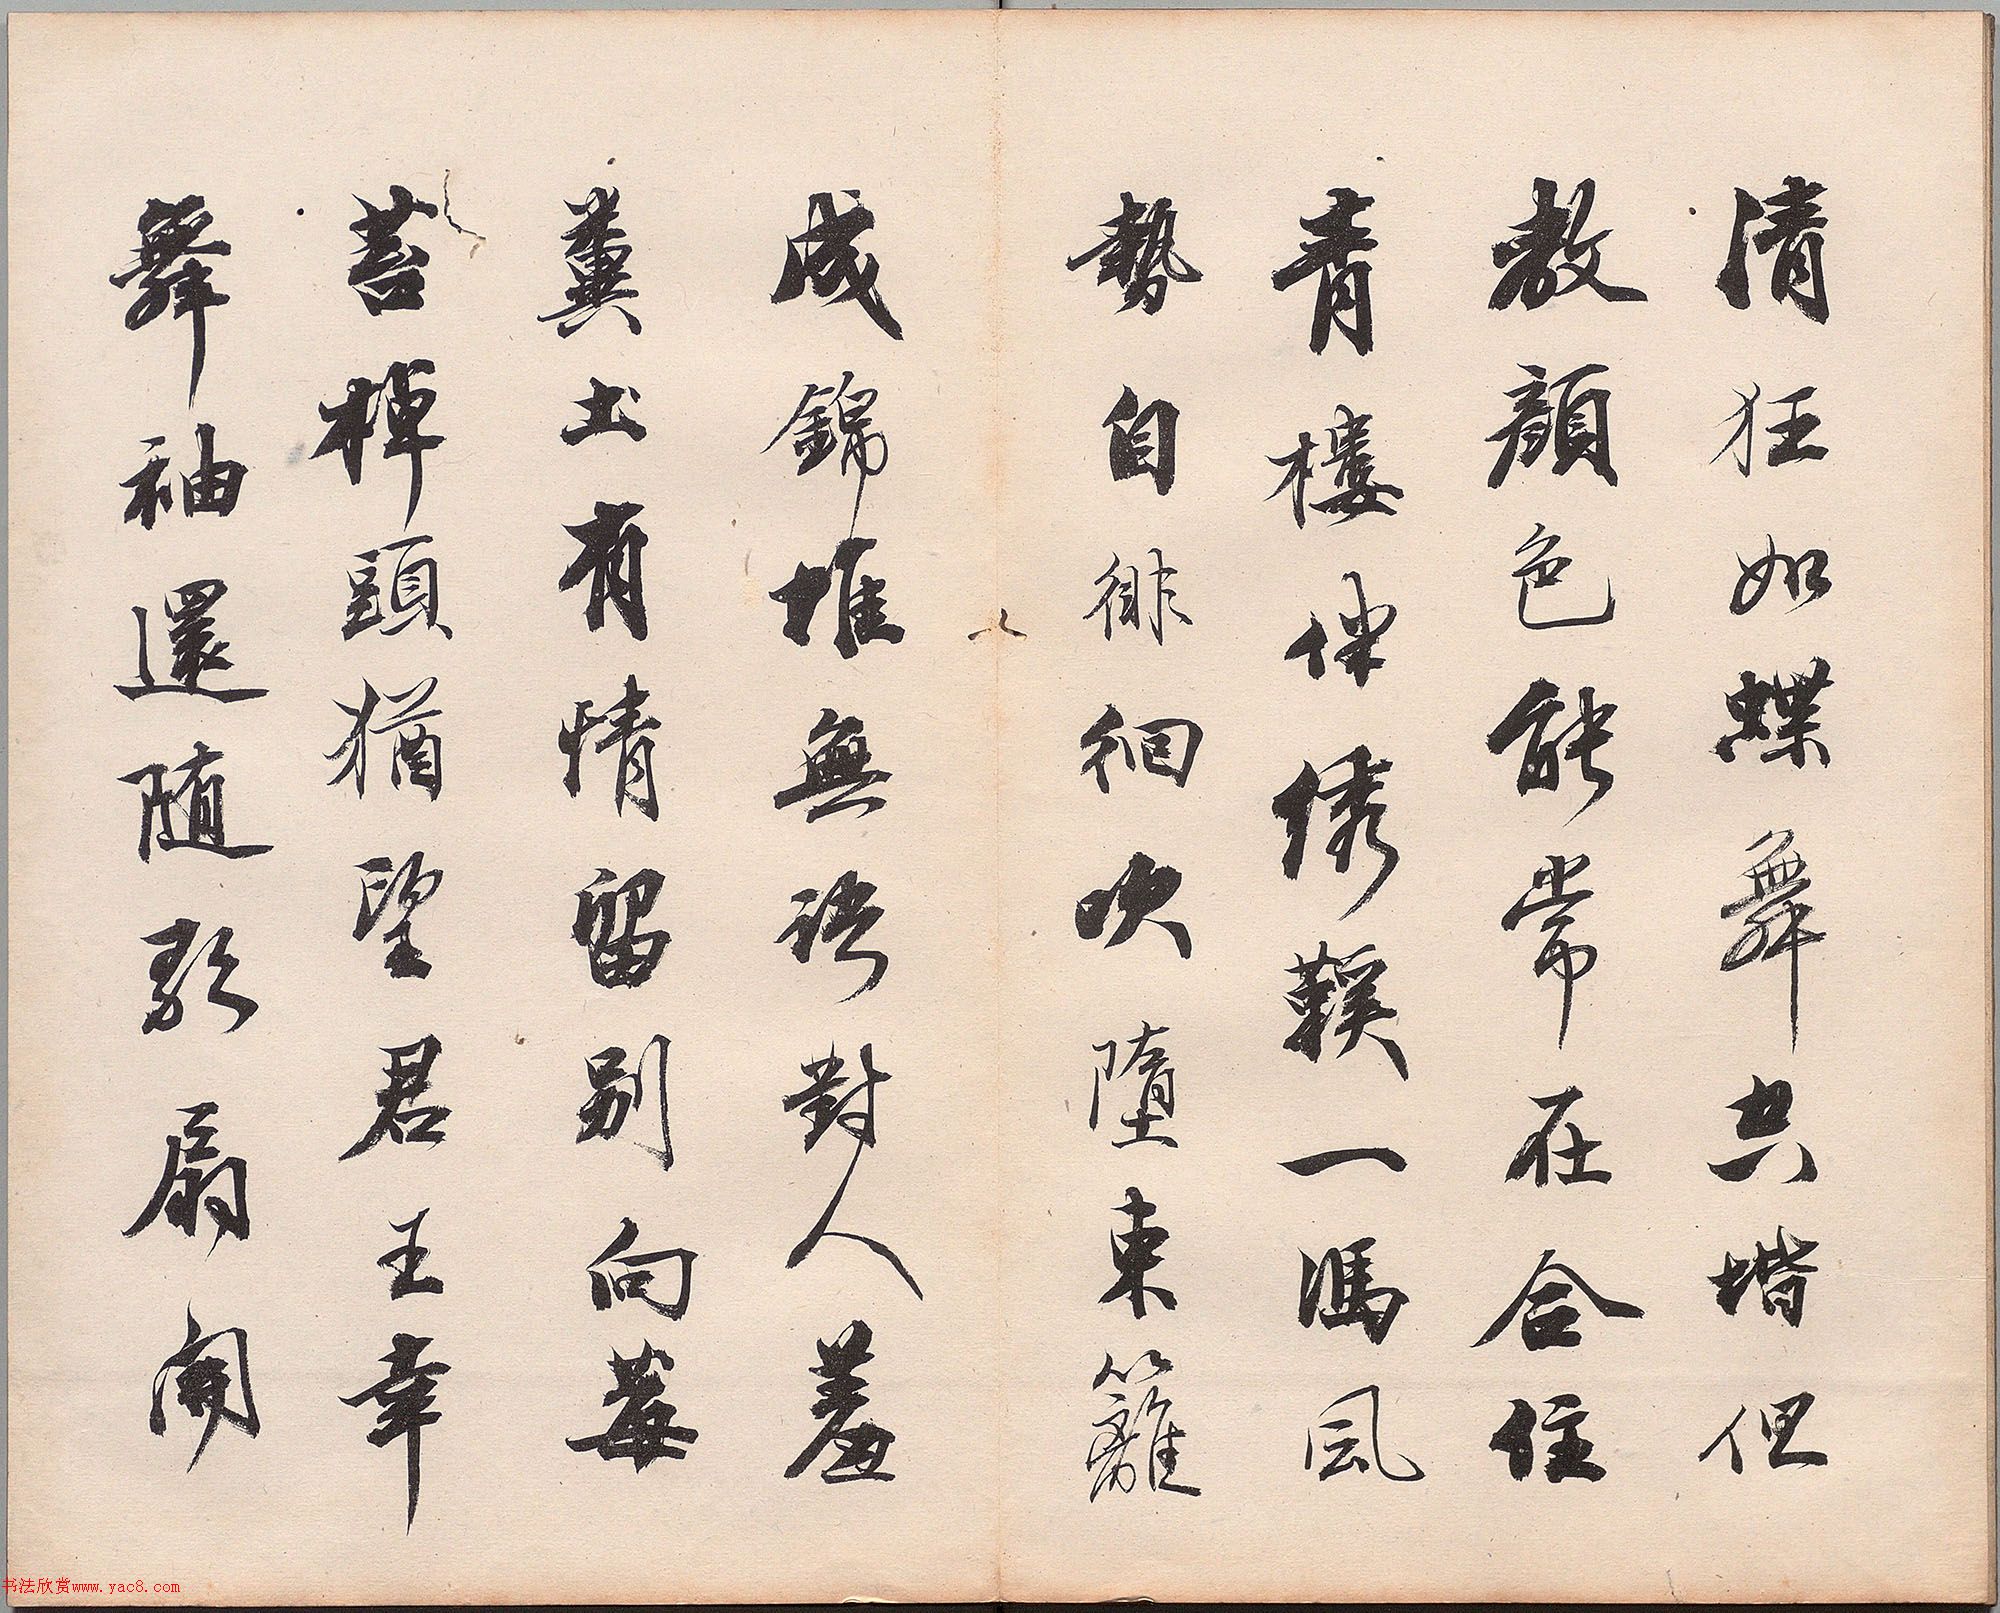 清狂如蝶舞共堦但
教顔色能常在合住
青樓伴綉鞵一馮風
勢自徘徊吹墮東籬
成錦堆無語對人羞
糞土有情留别向莓
苔掉頭猶望君王幸
舞袖還随歌扇開
书法欣赏www.yac8.com